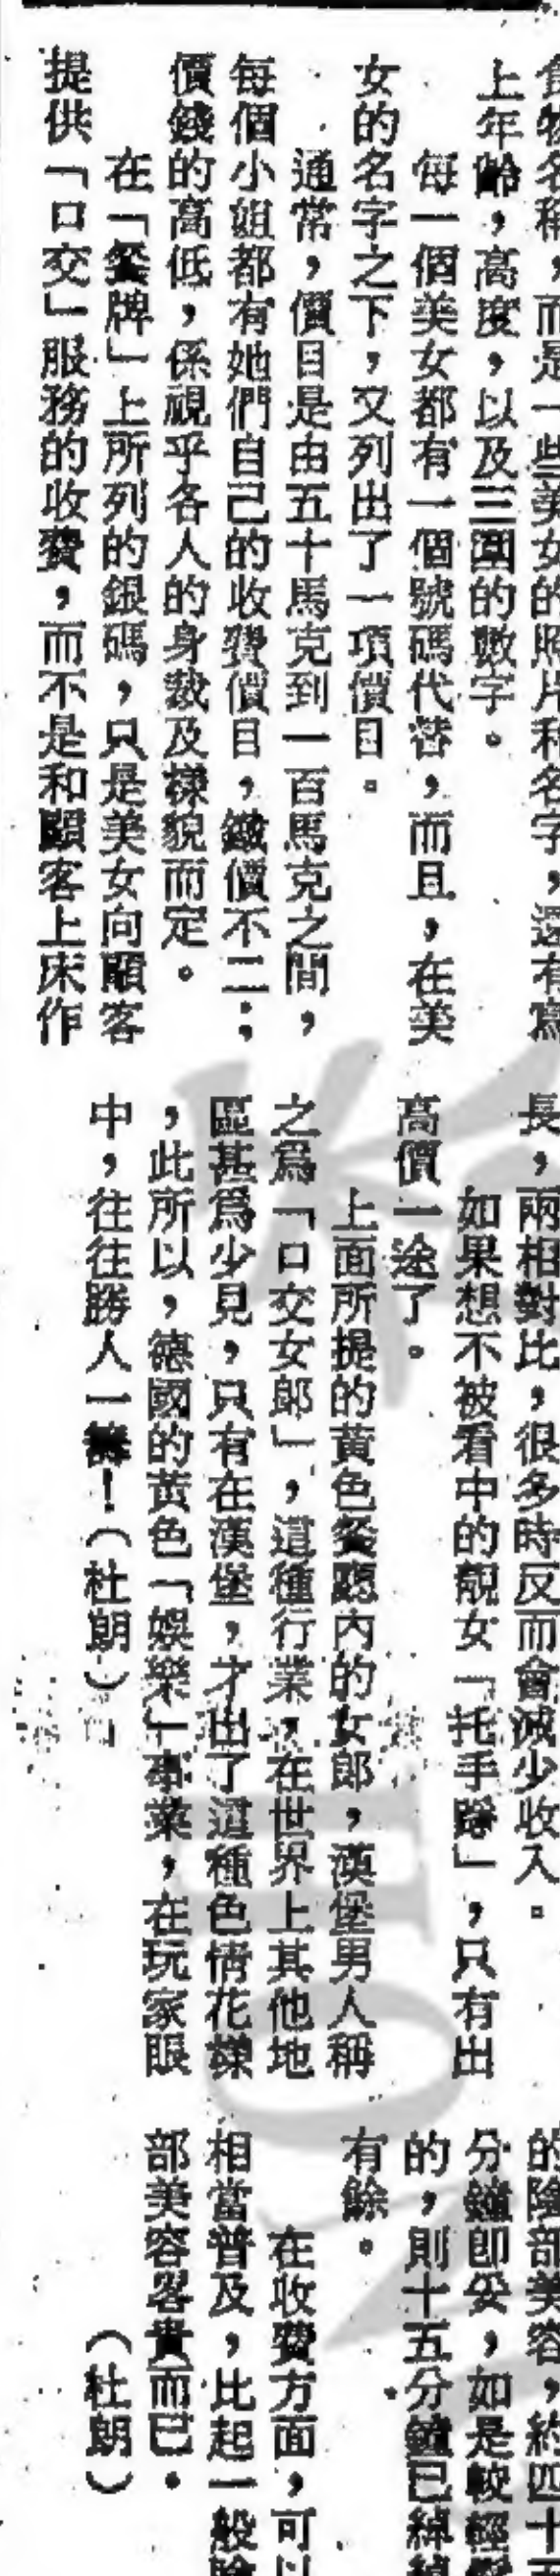 食物名稱，而是一些美女的照片和名字，還有寫
上年齡，高度，以及三圍的數字。
每一個美女都有一個號碼代替，而且，在美
女的名字之下，又列出了一項價目。
通常，價目是由五十馬克到一百馬克之間，
每個小姐都有她們自己的收費價目，鐵價不二；
價錢的高低，係視乎各人的身裁及樣貌而定。
在「餐牌」上所列的銀碼，只是美女向顧客
提供「口交」服務的收費，而不是和顧客上床作
長，兩相對比，很多時反而會減少收入。
如果想不被看中的靚女「托手踭」，只有出
高價一途了。
上面所提的黃色餐廳內的女郎，漢堡男人稱
之爲「口交女郎」，這種行業，在世界上其他地
區甚爲少見，只有在漢堡，才出了這種色情花樣
，此所以，德國的黃色「娛樂」事業，在玩家眼
中，往往勝人一籌！（杜朗）
的陰部美容，約四十五
分鐘即妥，如是較輕
的，則十五分鐘已綽綽
有餘。
在收費方面，可以
相當普及，比起一般
部美容畧貴而已。
（杜朗）